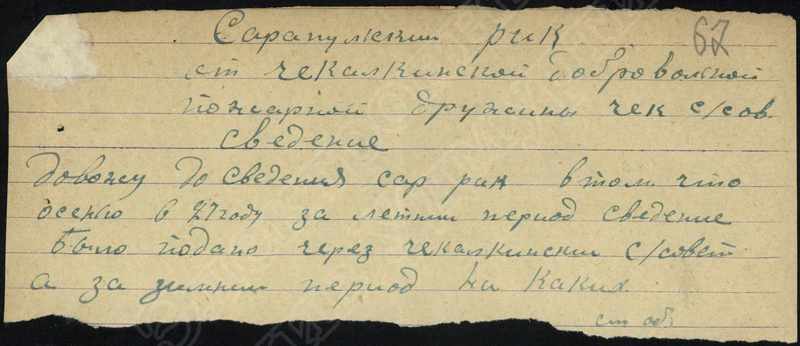 Сарапулский рик 67
от чекалкинской добровольной
пожарной дружины чек с/сов.
сведение
Довожу до сведения сар рик в том что
осенью в 27 году за летний период сведение
было подано через чекалкинский с/совет
а за зимний период ни каких